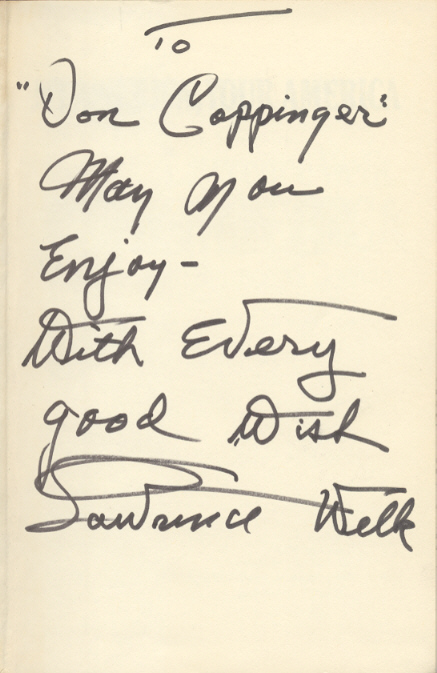 To
"Don Coppinger"
May you
Enjoy-
With Every
good Wish
Lawrence Welk